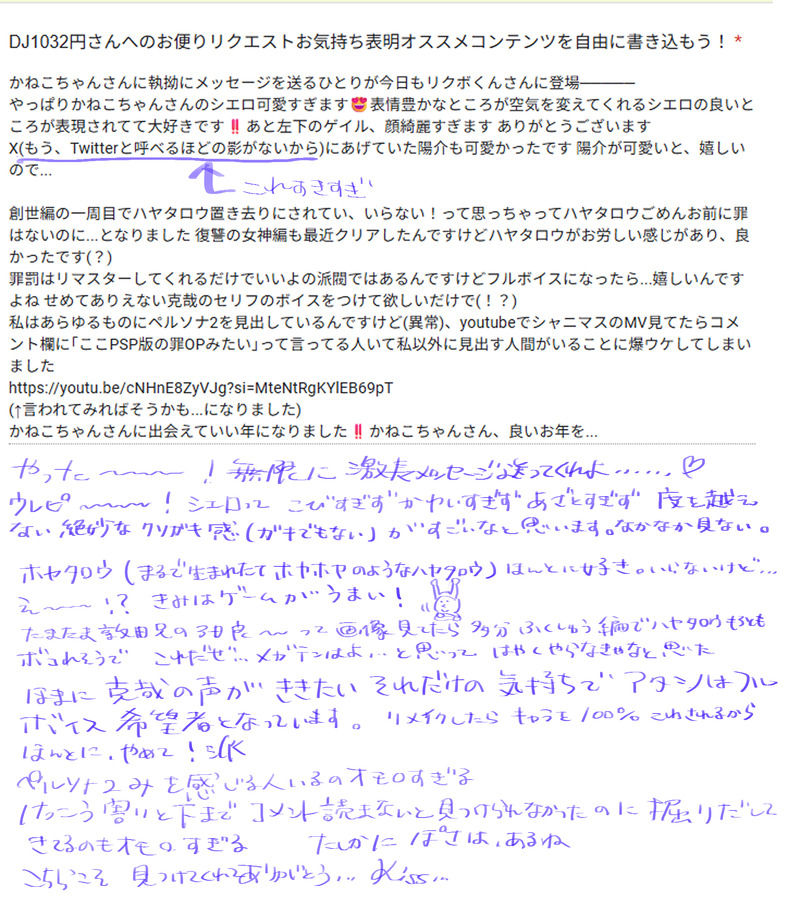 DJ1032円さんへのお便りリクエストお気持ち表明オススメコンテンツを自由に書き込もう！ *
かねこちゃんさんに執拗にメッセージを送るひとりが今日もリクボくんさんに登場━━━━━
やっぱりかねこちゃんさんのシエロ可愛すぎます😍表情豊かなところが空気を変えてくれるシエロの良いと
ころが表現されてて大好きです‼️あと左下のゲイル、顔綺麗すぎます ありがとうございます
X(もう、Twitterと呼べるほどの影がないから)にあげていた陽介も可愛かったです 陽介が可愛いと、嬉しい
ので...
これすきすぎ
創世編の一周目でハヤタロウ置き去りにされてい、いらない！って思っちゃってハヤタロウごめんお前に罪
はないのに...となりました 復讐の女神編も最近クリアしたんですけどハヤタロウがお労しい感じがあり、良
かったです(？)
罪罰はリマスターしてくれるだけでいいよの派閥ではあるんですけどフルボイスになったら...嬉しいんです
よね せめてありえない克哉のセリフのボイスをつけて欲しいだけで(！？)
私はあらゆるものにペルソナ2を見出しているんですけど(異常)、youtubeでシャニマスのMV見てたらコメ
ント欄に｢ここPSP版の罪OPみたい｣って言ってる人いて私以外に見出す人間がいることに爆ウケしてしまい
ました
https://youtu.be/cNHnE8ZyVJg?si=MteNtRgKYlEB69pT
(↑言われてみればそうかも...になりました)
かねこちゃんさんに出会えていい年になりました‼️かねこちゃんさん、良いお年を...
やった〜〜〜！無限に 激長メッセージ送ってくれよ......♡
ウレピ〜〜〜！ シエロって こびすぎず かわいすぎず あざとすぎず 度を越え
ない 絶妙な クソガキ感 (ガキでもない) がすごいなと思います。なかなか見ない。
ホヤタロウ (まるで生まれたて ホヤホヤのようなハヤタロウ) ほんとに好き。いらないけど...
え〜〜!? きみはゲームがうまい！
たまたま 敦田兄の 〜って 画像見てたら 多分 ふくしゅう編でハヤタロウもろとも
ボコれそうで これだぜ... メガテンはよ... と思って はやくやらなきゃなと思った
ほまに 克哉の声が ききたい それだけの 気持ちで アタシはフル
ボイス希望者となっています。 リメイクしたら キャラを 100% これされるから
ほんとに、やめて！
ペルソナ2みを感じる人いるのオモロすぎる
けっこう割りと下まで コメント読まないと見つけられなかったのに 掘りだして
きてるのもオモロすぎる たしかに ぽさは、あるね
こちらこそ 見つけてくれてありがとう... Kiss...